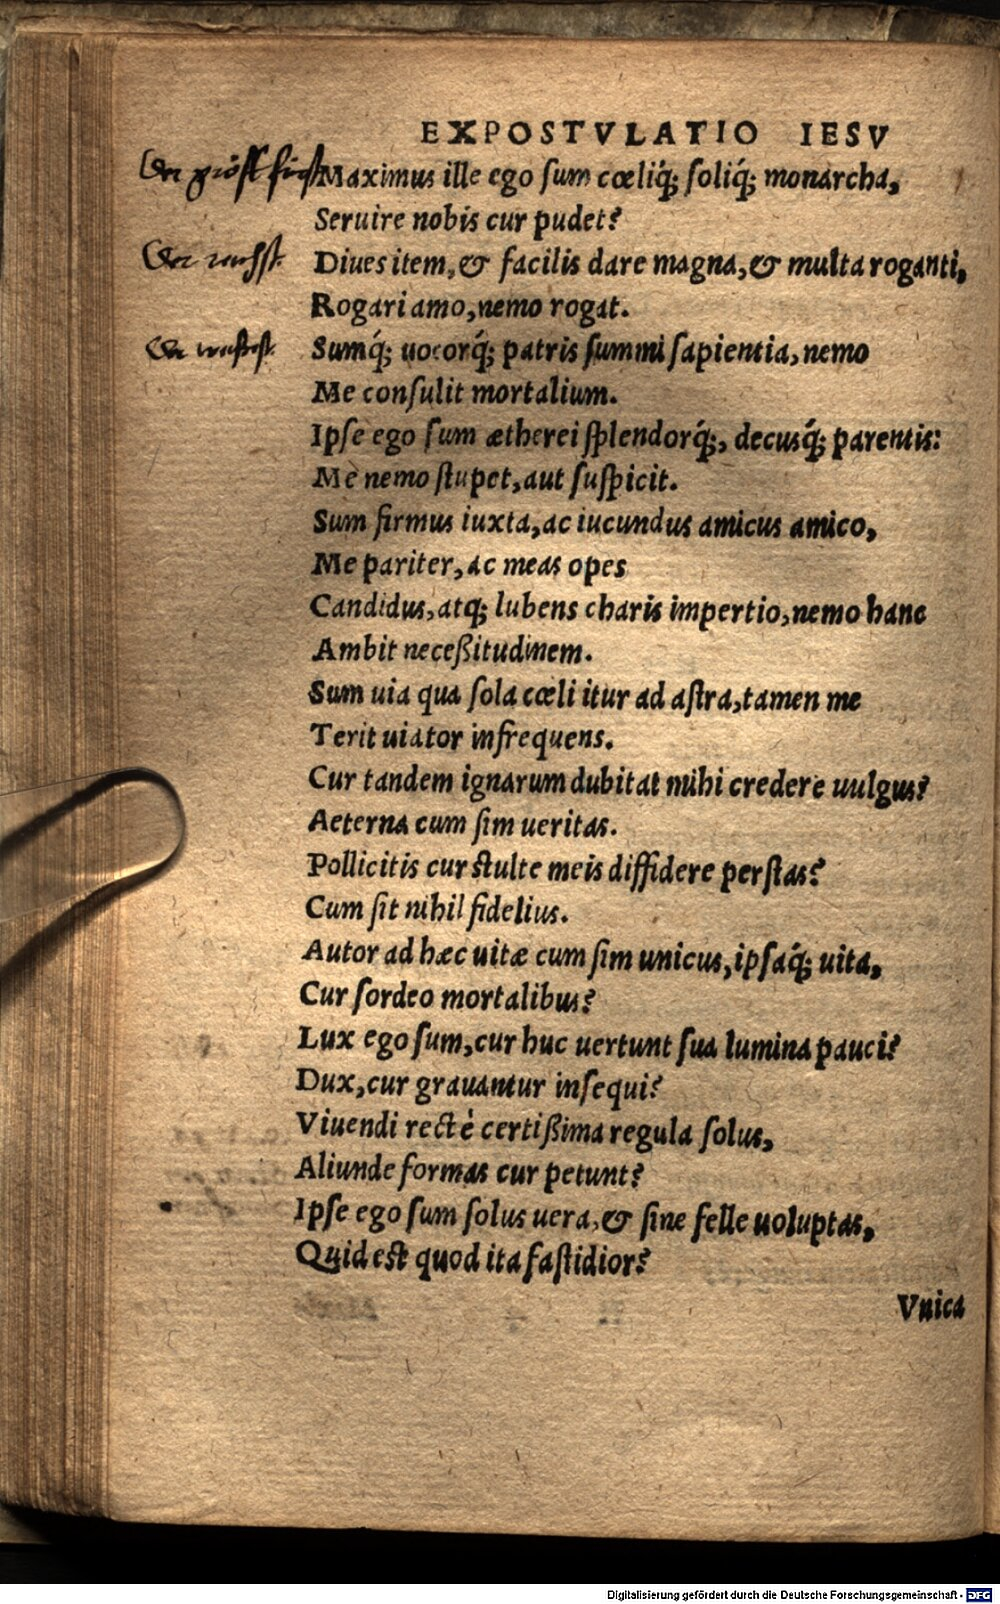 EXPOSTVLATIO IESV
Maximus ille ego ſum cœliq́; ſoliq́; monarcha,
Seruire nobis cur pudet?
Diues item, & facilis dare magna, & multa roganti,
Rogari amo, nemo rogat.
Sumq́; uocorq́; patris ſummi ſapientia, nemo
Me conſulit mortalium.
Ipſe ego ſum ætherei ſplendorq́;, decusq́; parentis:
Me nemo ſtupet, aut ſuſpicit.
Sum firmus iuxta, ac iucundus amicus amico,
Me pariter, ac meas opes
Candidus, atq; lubens charis impertio, nemo hanc
Ambit neceßitudinem.
Sum uia qua ſola cœli itur ad aſtra, tamen me
Terit uiator infrequens.
Cur tandem ignarum dubitat mihi credere uulgus?
Aeterna cum ſim ueritas.
Pollicitis cur ſtulte meis diffidere perſtas?
Cum ſit nihil fidelius.
Autor ad hæc uitæ cum ſim unicus, ipſaq́; uita,
Cur ſordeo mortalibus?
Lux ego ſum, cur huc uertunt ſua lumina pauci?
Dux, cur grauantur inſequi?
Viuendi rectè certißima regula ſolus,
Aliunde formas cur petunt?
Ipſe ego ſum ſolus uera, & ſine felle uoluptas,
Quid est quod ita faſtidior?
Vnica
Digitalisierung gefördert durch die Deutsche Forschungsgemeinschaft - DFG